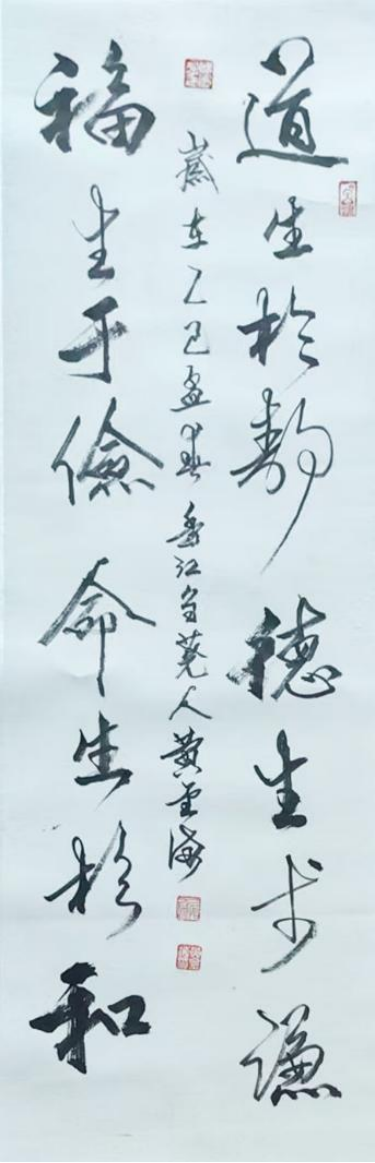 道生於静德生于謙
歲在乙巳孟春香江芻蕘人黄雲海
福生于儉命生於和